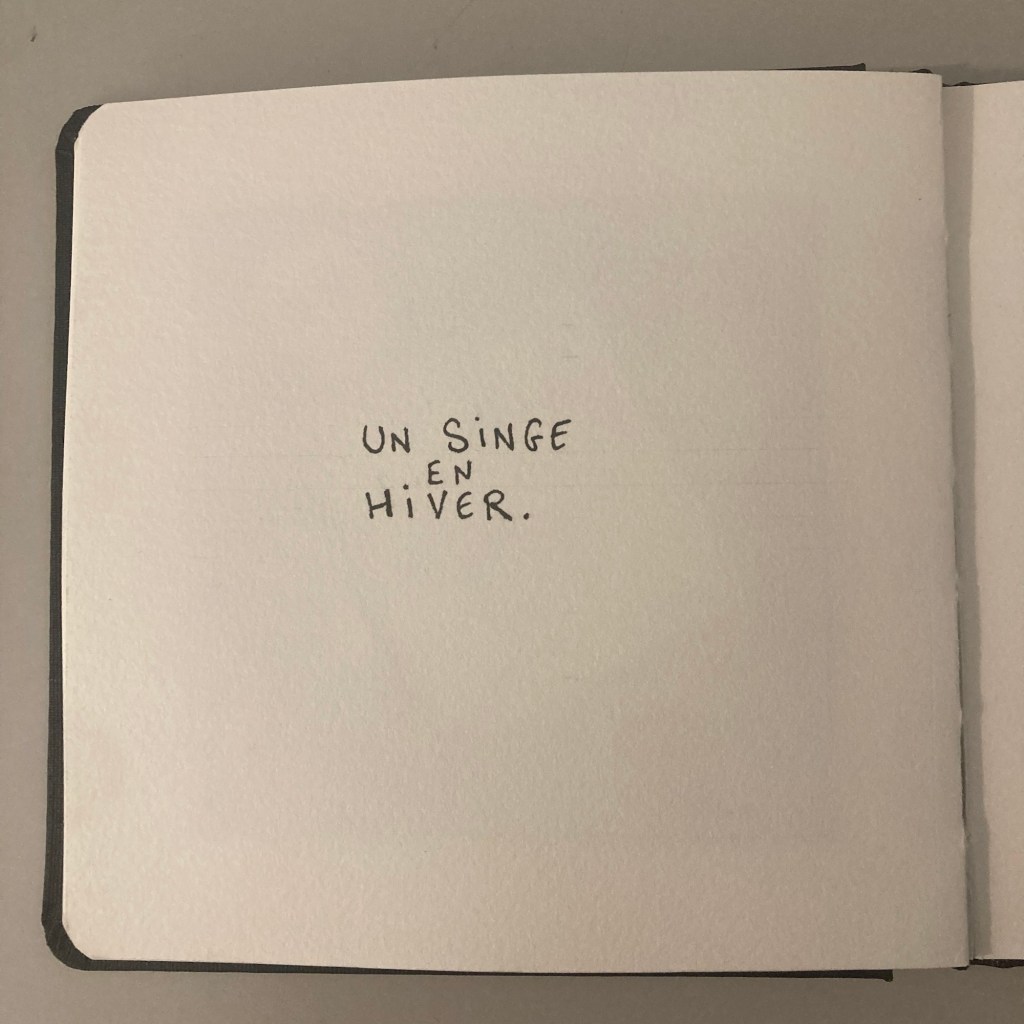 UN SiNGE
EN
HiVER.